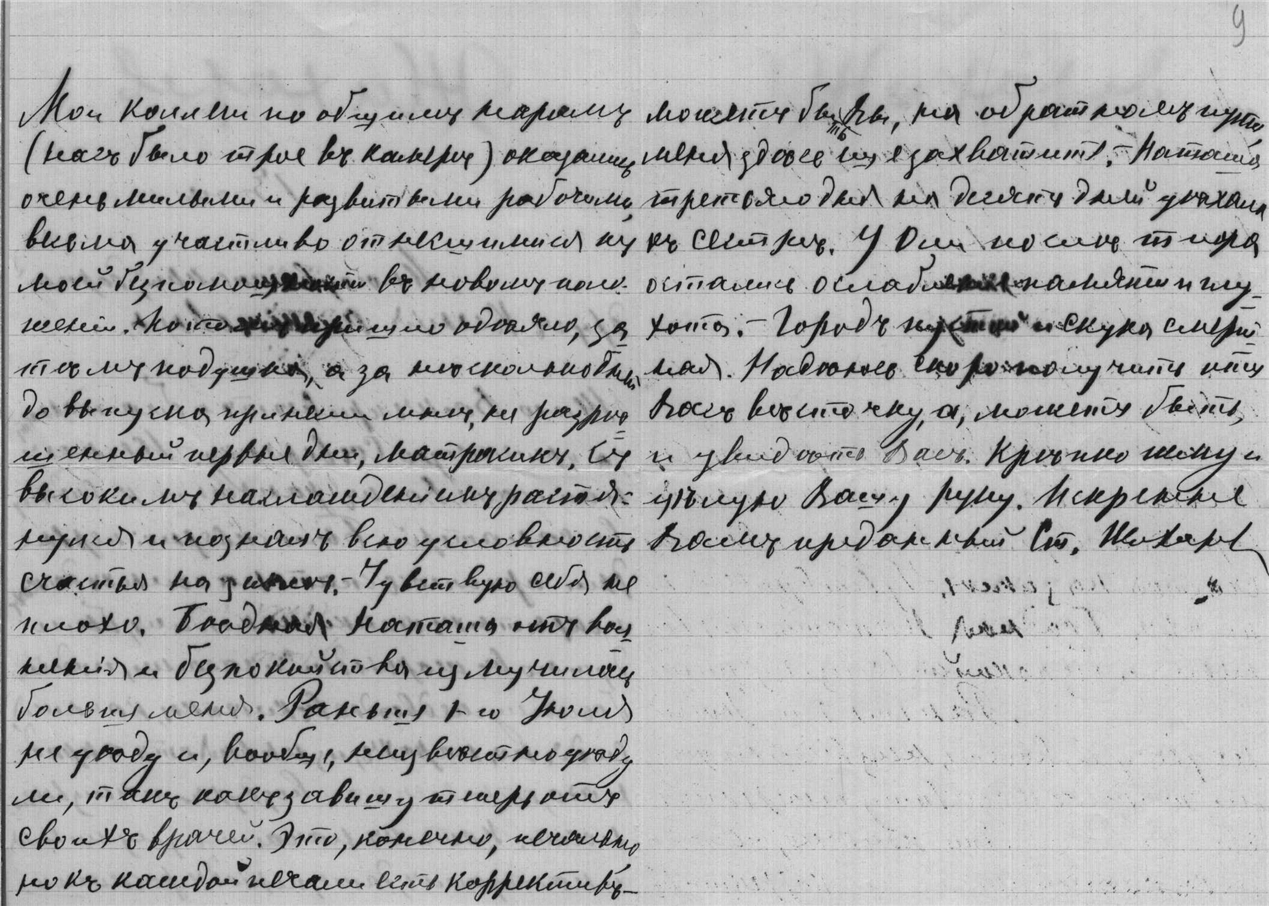 9
Мои коллеги по общимъ нарамъ
(насъ было трое въ камерѣ) оказались
очень милыми и развитыми рабочими,
весьма участливо отнесшимися къ
моей безпомощности въ новомъ поло-
женіи. Кото пришло одѣяло, за
тѣмъ подушка, а за нѣсколько дней
до выпуска принесли мнѣ, не разрѣ-
шенный первые дни, матрасикъ. Съ
высокимъ наслажденіемъ растя-
нулся и позналъ всю условность
счастья на землѣ. – Чувствую себя не
плохо. Бѣдная Наташа отъ вол
ненія и безпокойства измучилась
больше меня. Раньше 1-го Іюля
не уѣду и, вообще, неизвѣстно уѣду
ли, такъ какъ завишу теперь отъ
своихъ врачей. Это, конечно, печально
но къ каждой печали есть коррективъ –
можетъ быть Вы, на обратномъ пути
меня здѣсь еще захватите. – Наташа
третьяго дня на десять дней уѣхала
къ сестрѣ. У Оли послѣ тифа
остались ослабленіе памяти и глу-
хота. – Городъ пустой и скука смерт-
ная. Надѣюсь скоро получить отъ
Васъ вѣсточку, а, можетъ быть,
и увидѣть Васъ. Крѣпко жму и
цѣлую Вашу руку. Искренне
Вамъ преданный Ст.